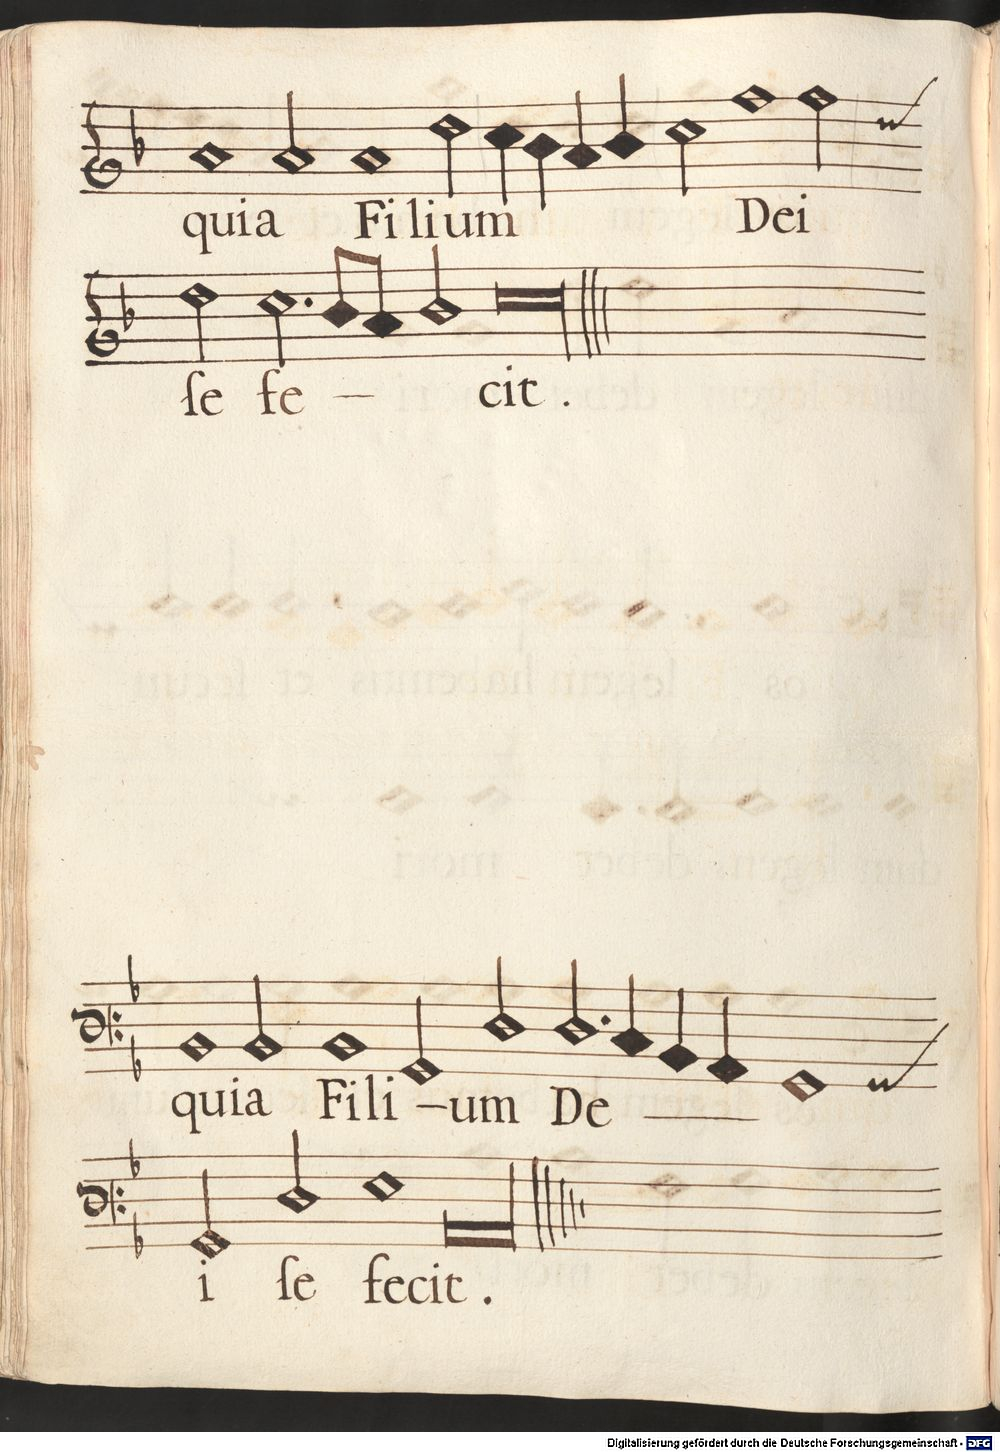 quia Filium Dei
ſe fe — cit .
quia Fili —um De —
i ſe fecit .
Digitalisierung gefördert durch die Deutsche Forschungsgemeinschaft - DFG